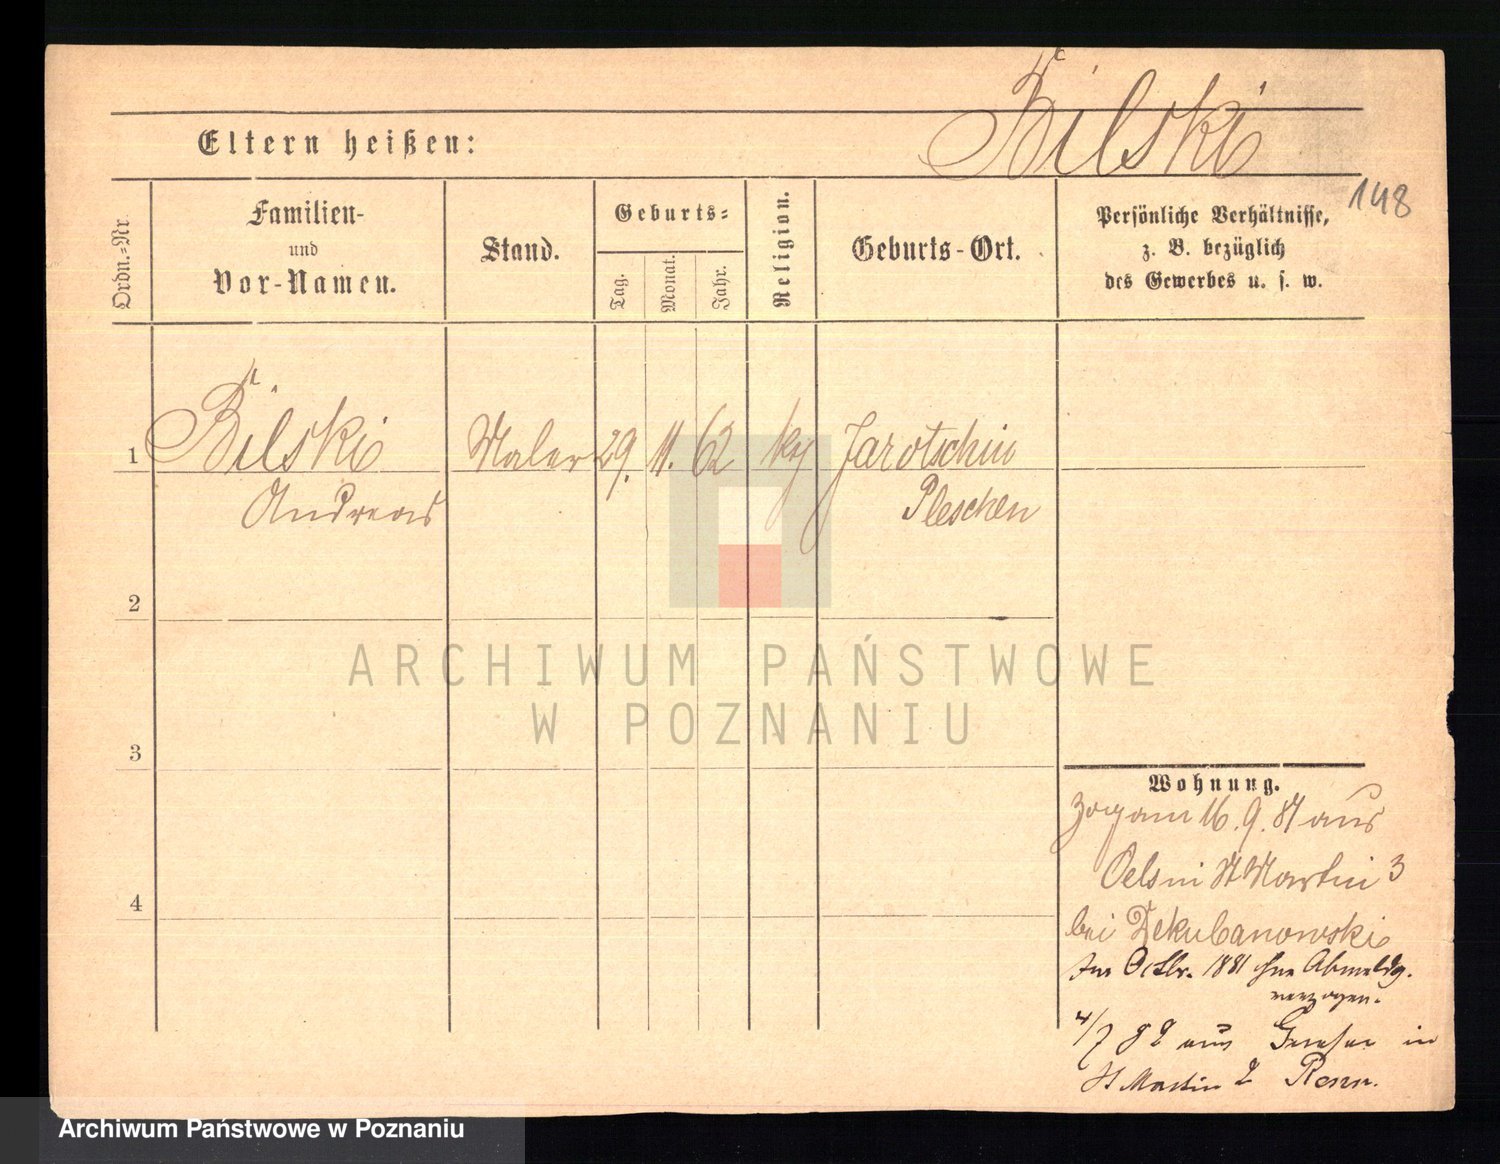 Bilski
Eltern heißen:
148
Ordn.-Nr.
Familien-
und
Vor-Namen.
Stand.
Geburts-
Tag.
Monat.
Jahr.
Religion.
Geburts-Ort.
Persönliche Verhältnisse,
z. B. bezüglich
des Gewerbes u. s. w.
1
Bilski
Maler
29.
11.
62
Jarotschin
Andreas
Pleschen
2
ARCHIWUM PAŃSTWOWE
W POZNANIU
3
Wohnung.
zog am 16. 9. 81 aus
Oels in St Martin 3
4
bei
Im Octbr. 1881 ohne Abmeldg.
verzogen.
4/7 82 aus in
St Martin 2
Archiwum Państwowe w Poznaniu